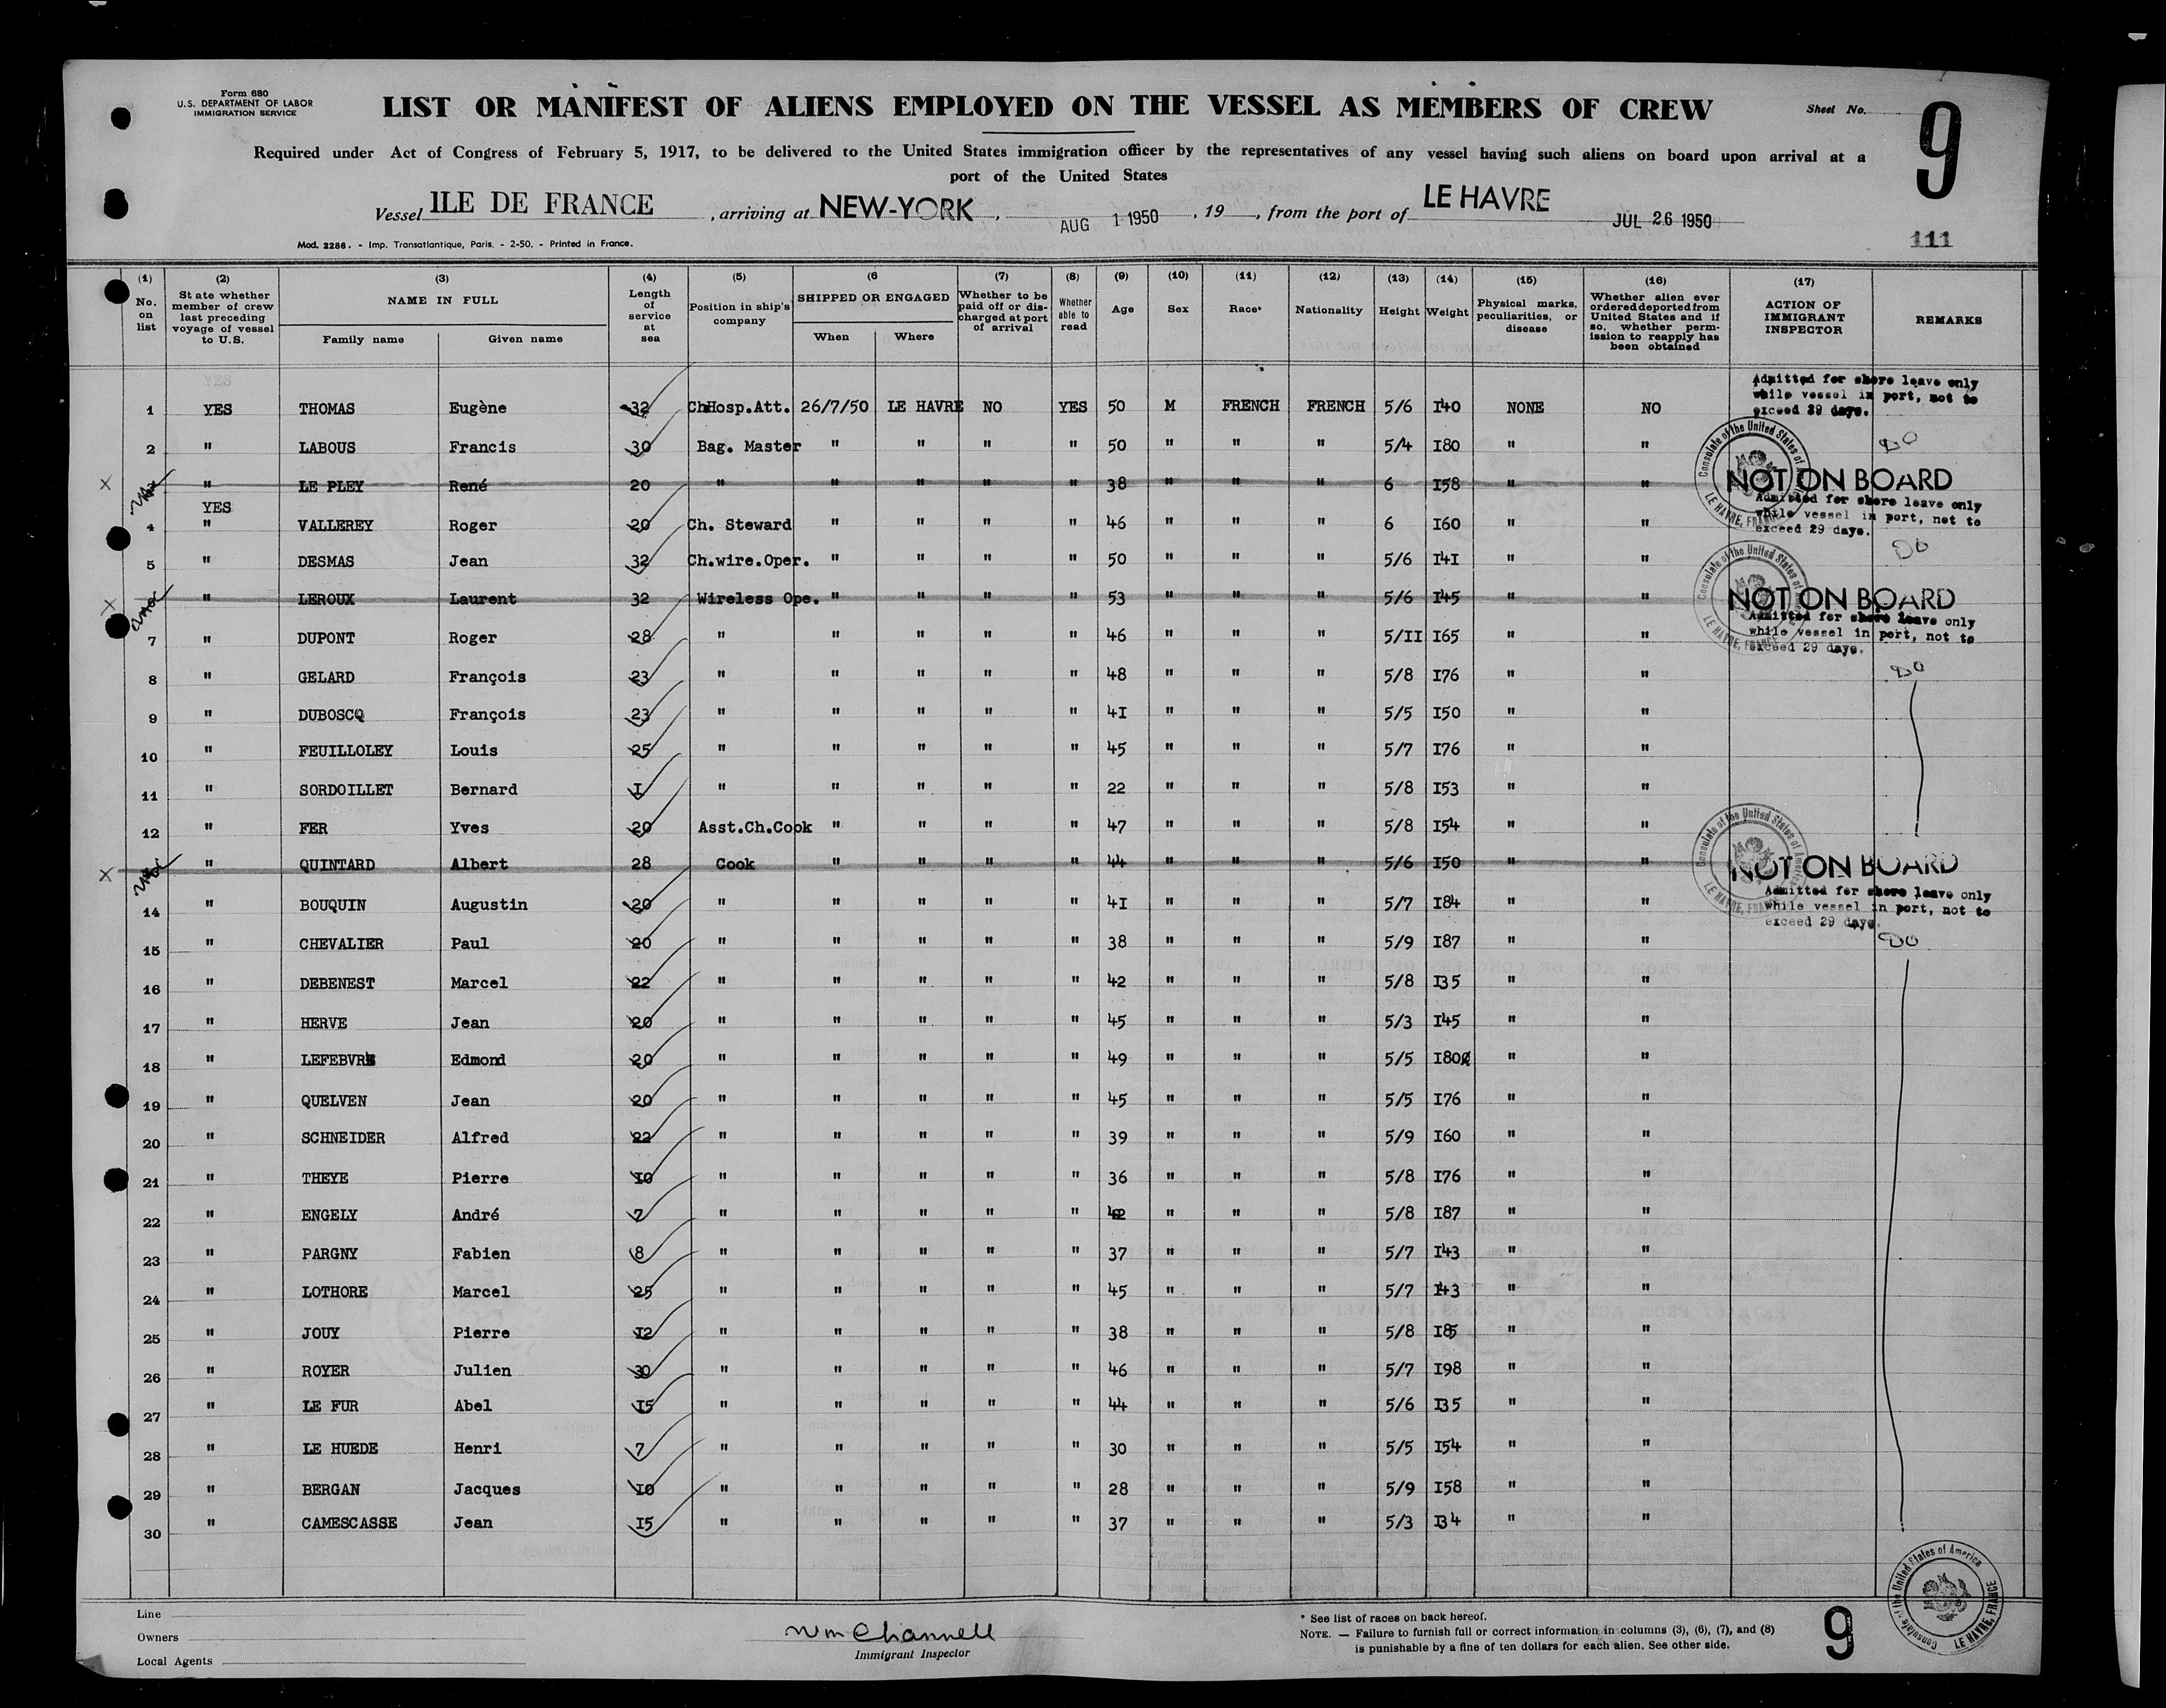 Form 680
U.S. DEPARTMENT OF LABOR
IMMIGRATION SERVICE
LIST OR MANIFEST OF ALIENS EMPLOYED ON THE VESSEL AS MEMBERS OF CREW
Sheet No. 9
Required under Act of Congress of February 5, 1917, to be delivered to the United States immigration officer by the representatives of any vessel having such aliens on board upon arrival at a
port of the United States
Vessel ILE DE FRANCE, arriving at NEW-YORK, AUG 1 1950, 19, from the port of LE HAVRE JUL 26 1950
Mod. 2286. - Imp. Transatlantique, Paris. - 2-50. - Printed in France.
111
(1) No. on list (2) State whether member of crew last preceding voyage of vessel to U.S. (3) NAME IN FULL Family name Given name (4) Length of service at sea (5) Position in ship's company (6 SHIPPED OR ENGAGED When Where (7) Whether to be paid off or discharged at port of arrival (8) Whether able to read (9) Age (10) Sex (11) Race* (12) Nationality (13) Height (14) Weight (15) Physical marks, peculiarities, or disease (16) Whether alien ever ordered deported from United States and if so, whether permission to reapply has been obtained (17) ACTION OF IMMIGRANT INSPECTOR REMARKS
YES
1 YES THOMAS Eugène 32 ChHosp.Att. 26/7/50 LE HAVRE NO YES 50 M FRENCH FRENCH 5/6 I40 NONE NO Admitted for shore leave only while vessel in port, not to exceed 29 days.
2 " LABOUS Francis 30 Bag. Master " " " " 50 " " " 5/4 I80 " " DO
" LE PLEY René 20 " " " " " 38 " " " 6 I58 " " NOT ON BOARD
YES
4 " VALLEREY Roger 20 Ch. Steward " " " " 46 " " " 6 I60 " " Admitted for shore leave only while vessel in port, not to exceed 29 days.
5 " DESMAS Jean 32 Ch.wire.Oper. " " " " 50 " " " 5/6 I4I " " DO
" LEROUX Laurent 32 Wireless Ope. " " " " 53 " " " 5/6 I45 " " NOT ON BOARD
7 " DUPONT Roger 28 " " " " " 46 " " " 5/II I65 " " Admitted for shore leave only while vessel in port, not to exceed 29 days.
8 " GELARD François 23 " " " " " 48 " " " 5/8 I76 " " DO
9 " DUBOSCQ François 23 " " " " " 4I " " " 5/5 I50 " "
10 " FEUILLOLEY Louis 25 " " " " " 45 " " " 5/7 I76 " "
11 " SORDOILLET Bernard I " " " " " 22 " " " 5/8 I53 " "
12 " FER Yves 20 Asst.Ch.Cook " " " " 47 " " " 5/8 I54 " "
" QUINTARD Albert 28 Cook " " " " 44 " " " 5/6 I50 " " NOT ON BOARD
14 " BOUQUIN Augustin 20 " " " " " 4I " " " 5/7 I84 " " Admitted for shore leave only while vessel in port, not to exceed 29 days.
15 " CHEVALIER Paul 20 " " " " " 38 " " " 5/9 I87 " " DO
16 " DEBENEST Marcel 22 " " " " " 42 " " " 5/8 I35 " "
17 " HERVE Jean 20 " " " " " 45 " " " 5/3 I45 " "
18 " LEFEBVRE Edmond 20 " " " " " 49 " " " 5/5 I80 " "
19 " QUELVEN Jean 20 " " " " " 45 " " " 5/5 I76 " "
20 " SCHNEIDER Alfred 22 " " " " " 39 " " " 5/9 I60 " "
21 " THEYE Pierre I0 " " " " " 36 " " " 5/8 I76 " "
22 " ENGELY André 7 " " " " " 42 " " " 5/8 I87 " "
23 " PARGNY Fabien 8 " " " " " 37 " " " 5/7 I43 " "
24 " LOTHORE Marcel 25 " " " " " 45 " " " 5/7 I43 " "
25 " JOUY Pierre I2 " " " " " 38 " " " 5/8 I85 " "
26 " ROYER Julien 30 " " " " " 46 " " " 5/7 I98 " "
27 " LE FUR Abel I5 " " " " " 44 " " " 5/6 I35 " "
28 " LE HUEDE Henri 7 " " " " " 30 " " " 5/5 I54 " "
29 " BERGAN Jacques I0 " " " " " 28 " " " 5/9 I58 " "
30 " CAMESCASSE Jean I5 " " " " " 37 " " " 5/3 I34 " "
Consulate of the United States of America LE HAVRE, FRANCE
Line
Owners
Local Agents
Wm Channell
Immigrant Inspector
* See list of races on back hereof.
NOTE. — Failure to furnish full or correct information in columns (3), (6), (7), and (8)
is punishable by a fine of ten dollars for each alien. See other side.
9